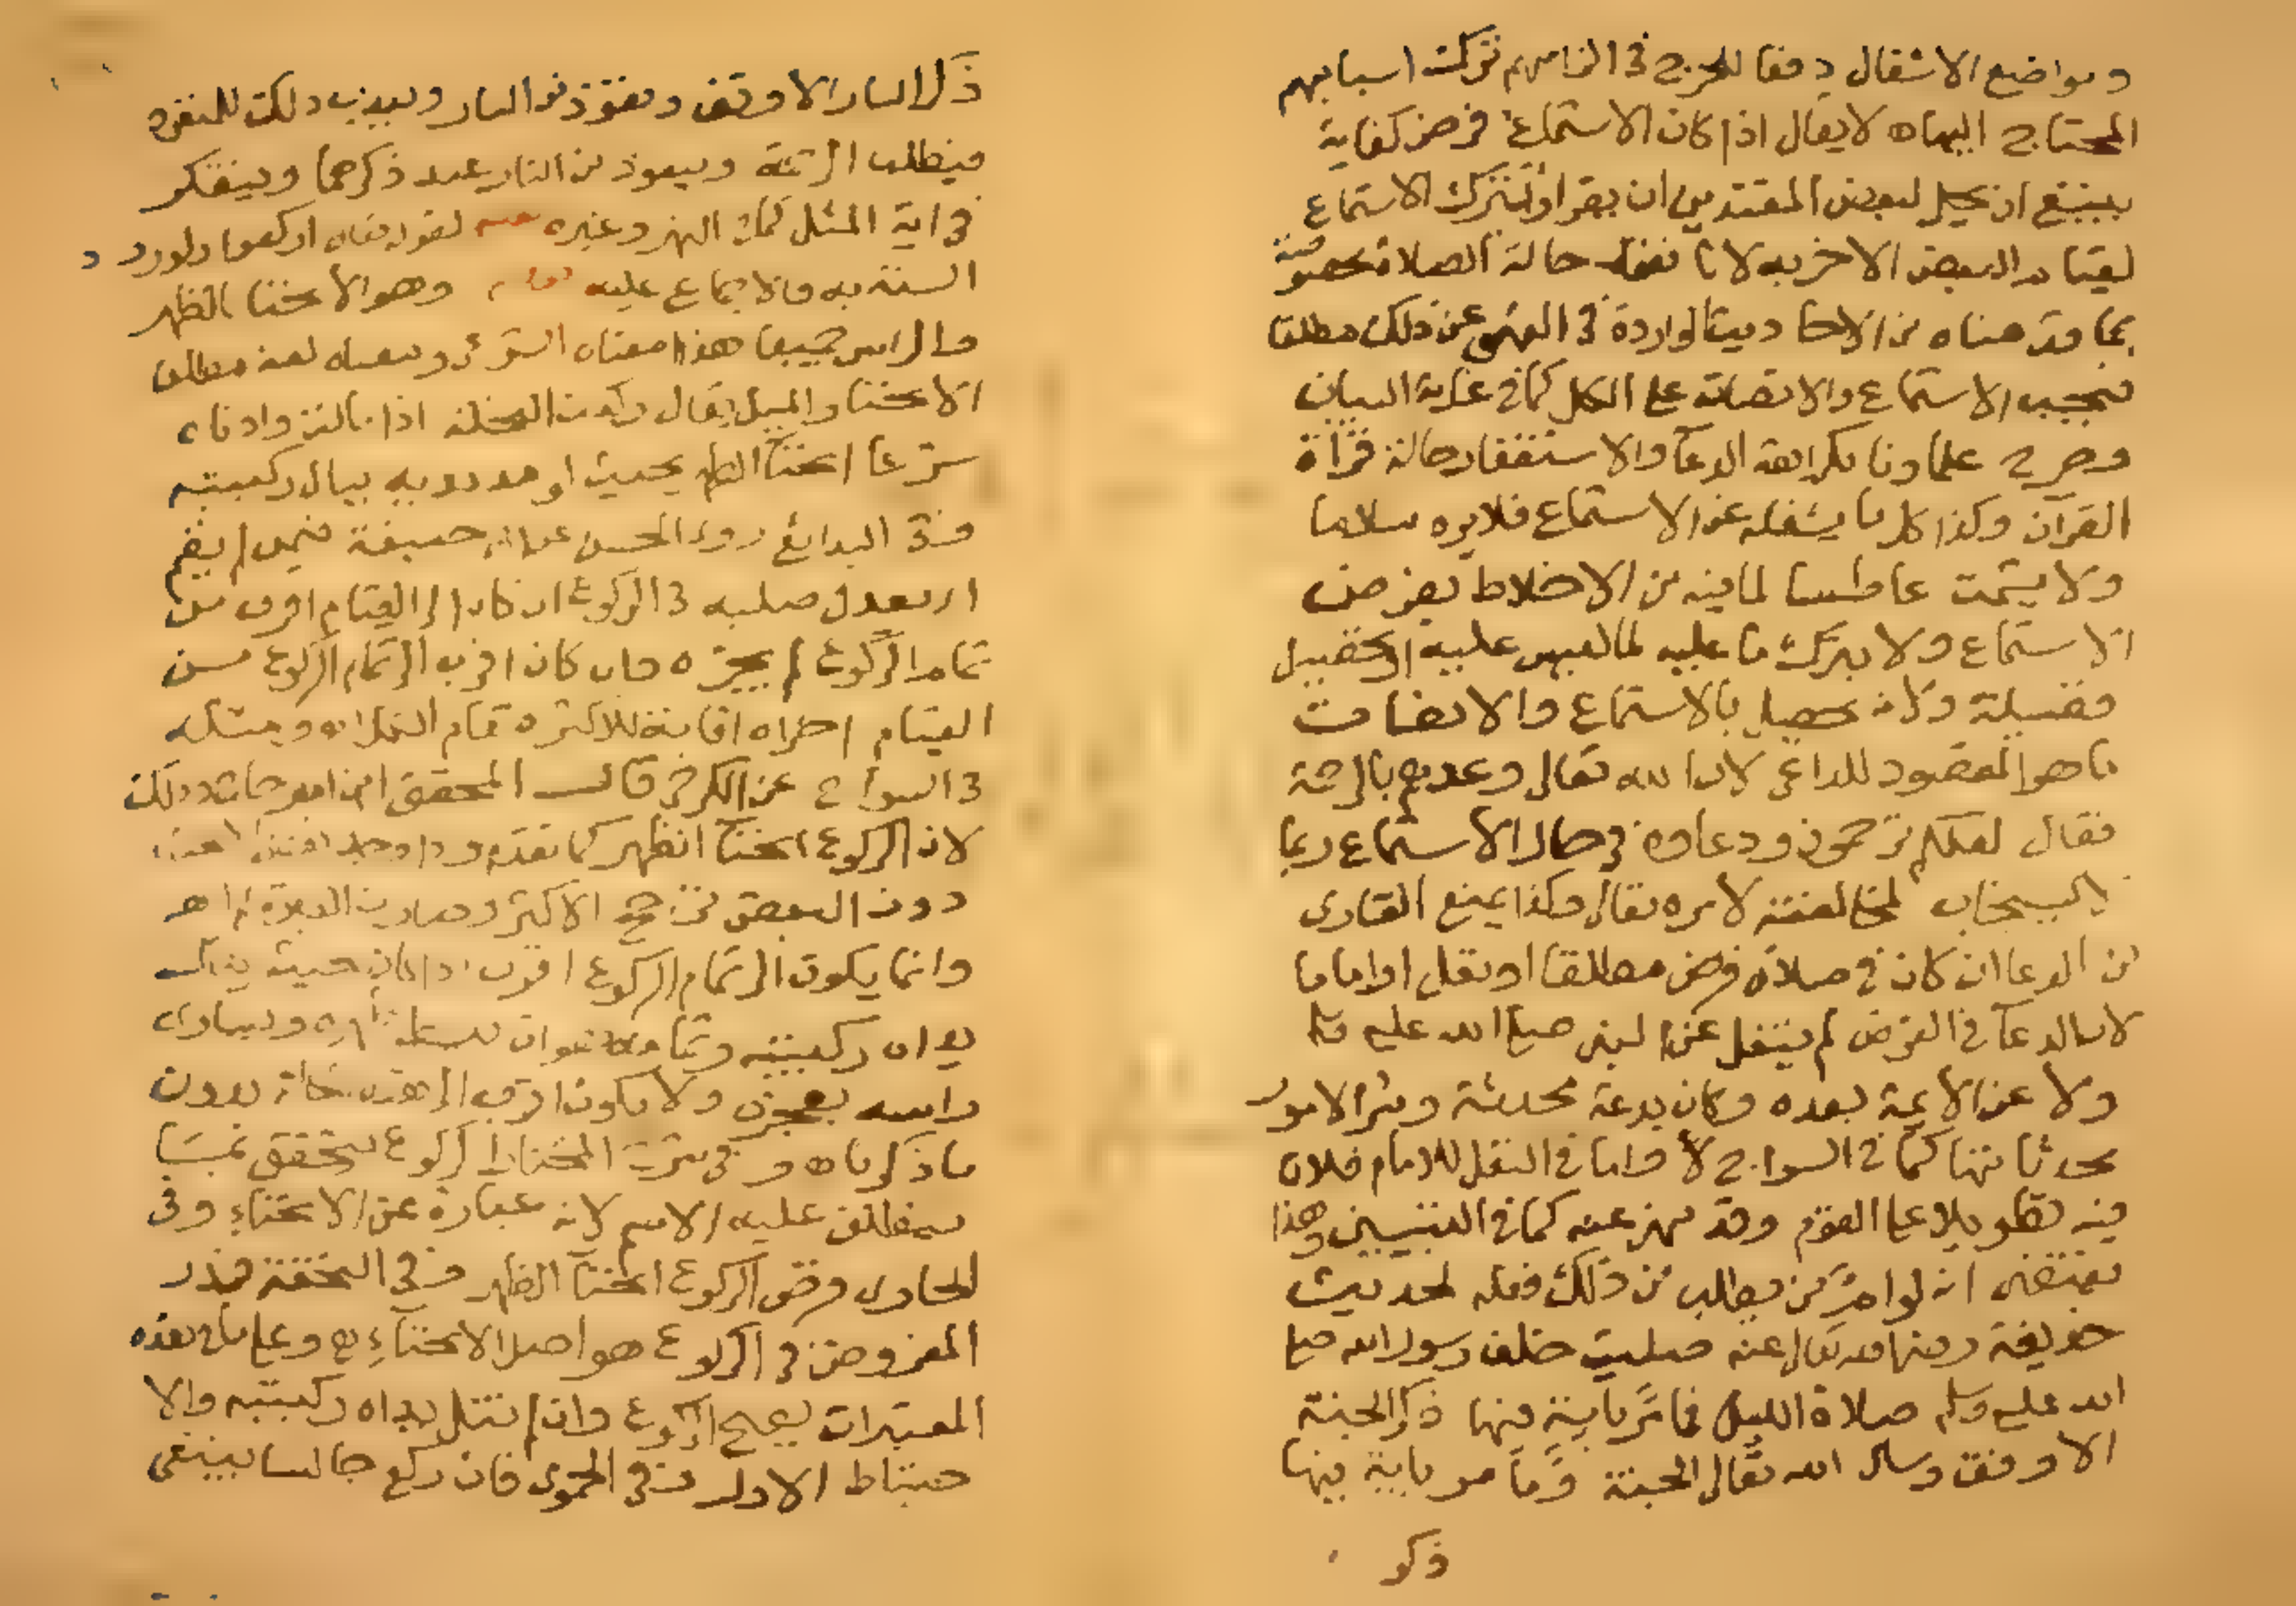 ومواضع الاشغال دفعا للحرج في الزامهم بترك اسبابهم
المحتاج اليها ه لا يقال اذا كان الاستماع فرض كفاية
ينبغي ان يحل لبعض المقتدين ان يقرا او يترك الاستماع
لقيام البعض الاخر به لانا نقول حالة الصلاة مخصوصة
بما قدمناه من الاحاديث الواردة في النهي عن ذلك مطلقا
فيجب الاستماع والانصات على الكل كما في غاية البيان
وصرح علماونا بكراهة الدعآ والاستغفار حالة قرأة
القرآن وكذا كل ما يشغله عن الاستماع فلا يرد سلاما
ولا يشمت عاطسا لما فيه من الاخلاط بفرض
الاستماع ولا يترك ما عليه لما ليس عليه او تحصيل
فضيلة ولانه يحصل بالاستماع والانصات
ما هو المقصود للداعي لان الله تعالى وعدهم بالرحمة
فقال لعلكم ترحمون ودعاوه في حال الاستماع ربما
لا يستجاب لمخالفته لامره تعالى وكذا يمنع القارى
من الدعا ان كان في صلاة فرض مطلقا او نفل اماما
لان الدعآ في الفرض لم ينقل عن النبي صلى الله عليه وسلم
ولا عن الايمة بعده وكان بدعة محدثة وشر الامور
محدثاتها كما في السراج لا واما في النفل للامام فلان
فيه تطويلا على القوم وقد نهي عنه كما في التبيين وهذا
يقتضي انه لو ام من يطلب من ذلك فعله لحديث
حذيفة رضي الله تعالى عنه صليت خلف رسول الله صلى
الله عليه وسلم صلاة الليل فما مر باية فيها ذكر الجنة
الا وقف وسال الله تعالى الجنة وما مر باية فيها
ذكر
ذكر النار الا وقف وتعوذ من النار ويندب ذلك للمنفرد
فيطلب الرحمة ويتعوذ من النار عند ذكرهما ويتفكر
في اية المثل كما في النهر وغيره لقوله تعالى اركعوا ولورود
السنة به والاجماع عليه وهو الانحنا بالظهر
والراس جميعا هذا معناه الشرعي ومعناه لغة مطلق
الانحنا والميل يقال ركعت النخلة اذا مالت وادناه
شرعا انحنآ الظهر بحيث لو مد يديه ينال ركبتيه
وفي البدايع روى الحسن عن ابي حنيفة فيمن لم يقم
صلبه في الركوع ان كان الى القيام اقرب من
تمام الركوع لم يجزه وان كان اقرب الى تمام الركوع من
القيام اجزاه اقامة للاكثر مقام الكل اه ومثله
في السراج عن الكرخي قال المحقق ابن امير حاج وذلك
لان الركوع انحنآ الظهر كما تقدم
دون البعض ترجح الاكثر وصارت العبرة له اهـ
وانما يكون الى تمام الركوع اقرب اذا كان حيث ينال
يداه ركبتيه
راسه بعجزه ولا يكون اقرب الى بدون
ما ذكرناه وفي شرح المختار الركوع يتحقق بما
ينطلق عليه الاسم لانه عبارة عن الانحناء وفي
الحاوى فرض الركوع انحنآ الظهر وفي التحفة قدر
المفروض في الركوع هو اصل الانحناء وعلى ما في هذه
المعتبرات يصح الركوع وان لم تنل يداه ركبتيه والا
حتياط الاول وفي الحموى فان ركع جالسا ينبغي